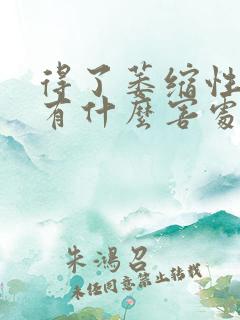 得了萎缩性
有什麼害處
朱鴻召
未任同意禁止转载